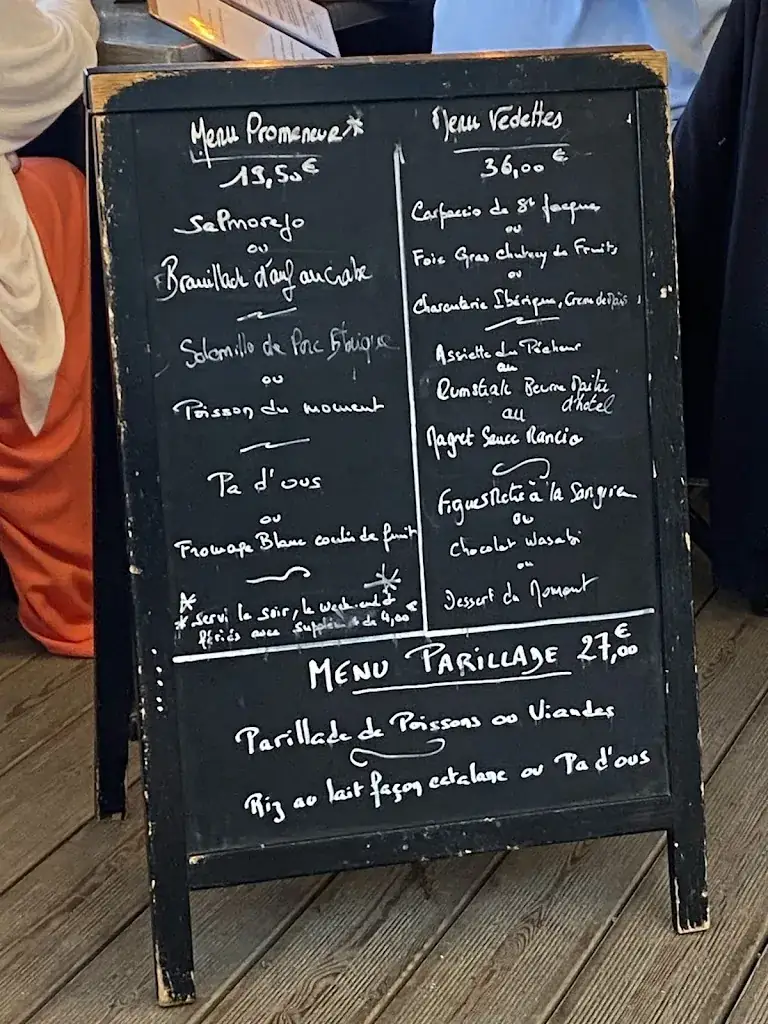 Menu Promeneur*
19,50€
Salmorejo
ou
Brouillade d'œuf au Crabe
Solomillo de Porc Ibérique
ou
Poisson du moment
Pa d'ous
ou
Fromage Blanc coulis de fruits
* servi le soir, le week-end &
fériés avec supplément de 4,00€
Menu Vedettes
36,00€
Carpaccio de St Jacques
ou
Foie Gras Chutney de Fruits
ou
Charcuterie Ibérique,
Assiette du Pêcheur
ou
Rumsteak Beurre Maitre
d'hôtel
ou
Magret Sauce Rancio
Figues à la Sangria
ou
Chocolat Wasabi
ou
Dessert du Moment
MENU PARILLADE 27,00€
Parillade de Poissons ou Viandes
Riz au lait façon catalane ou Pa d'ous